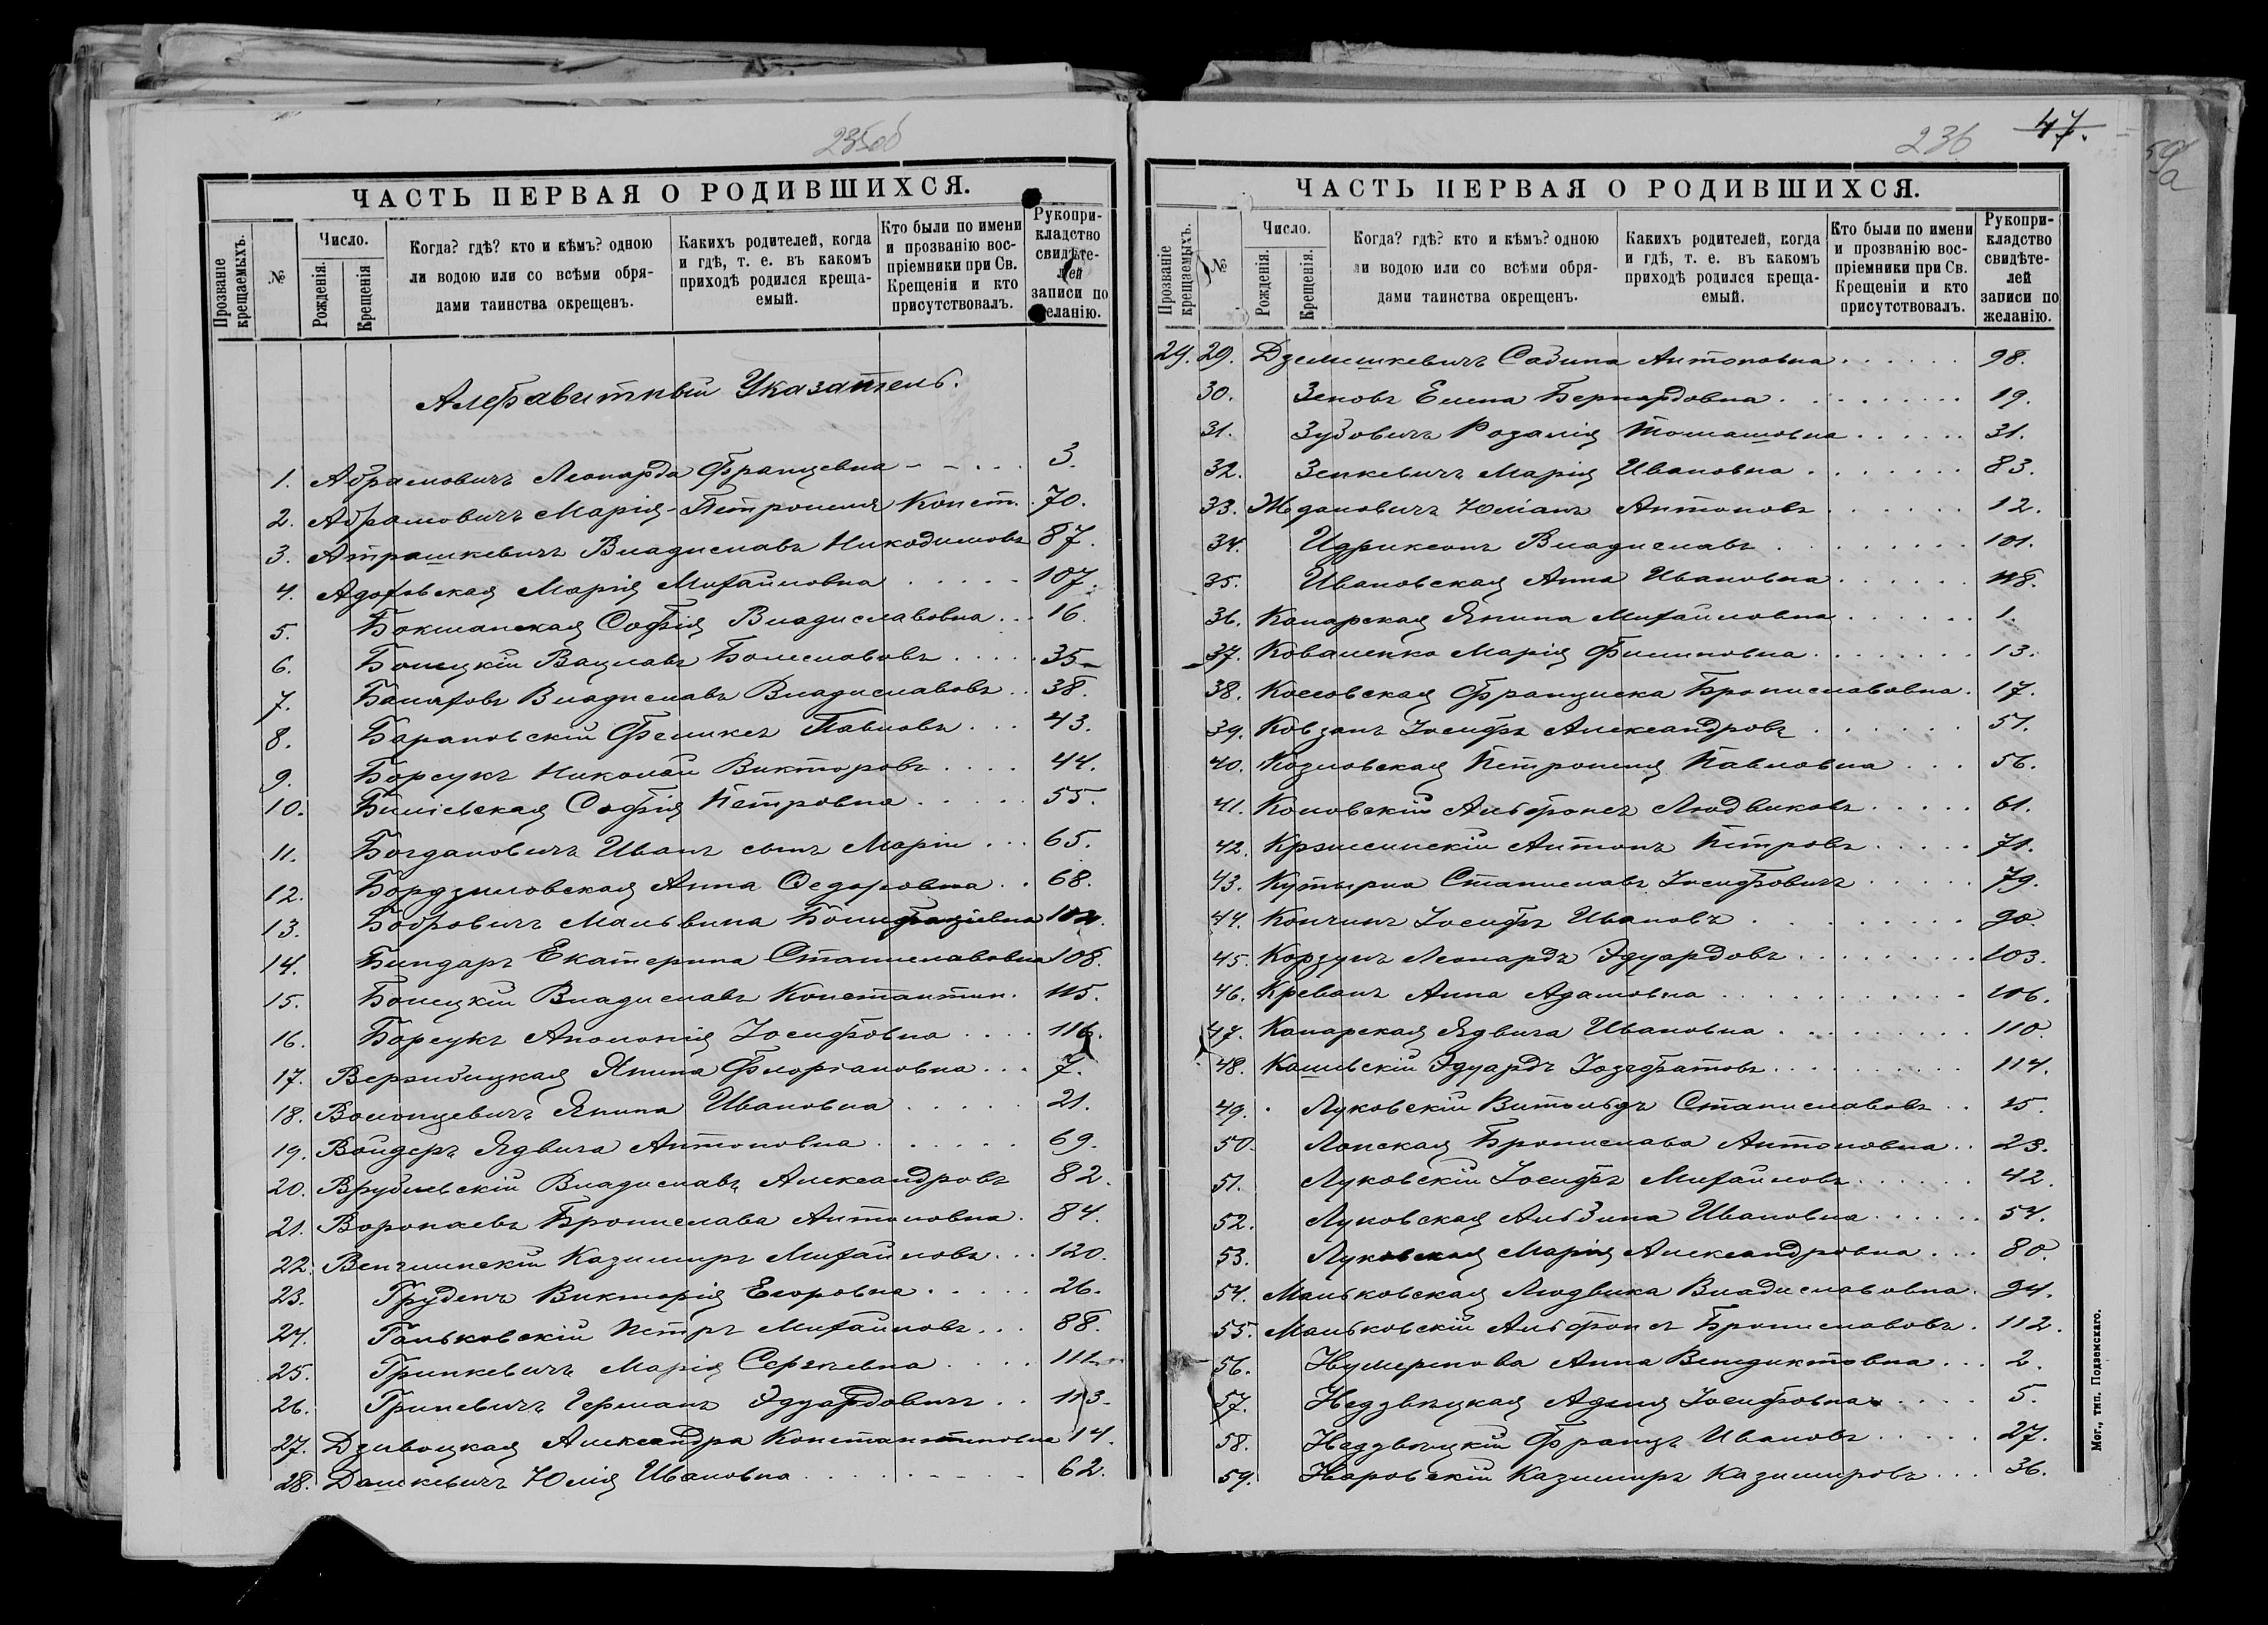 235об
ЧАСТЬ ПЕРВАЯ О РОДИВШИХСЯ.
Прозваніе крещаемыхъ.
№
Число.
Рожденія.
Крещенія
Когда? гдѣ? кто и кѣмъ? одною
ли водою или со всѣми обря-
дами таинства окрещенъ.
Какихъ родителей, когда
и гдѣ, т. е. въ какомъ
приходѣ родился креща-
емый.
Кто были по имени
и прозванію вос-
пріемники при Св.
Крещеніи и кто
присутствовалъ.
Рукопри-
кладство
свидѣте-
лей
записи по
желанію.
Алфавитный Указатель.
1. Абрамовичъ Леонарда Францевна - - . . . 3.
2. Абрамовичъ Марія-Петронеля Конст. 70.
3. Атрашкевичъ Владиславъ Никодимовъ 87.
4. Марія Михайловна . . . . . 107.
5. Бокшанская Софія Владиславовна . . . 16.
6. Болецкій Вацлавъ Болеславовъ . . . . 35
7. Владиславъ Владиславовъ . . 38.
8. Барановскій Феликсъ Павловъ . . . 43.
9. Борсукъ Николай Викторовъ . . . . 44.
10. Софія Петровна . . . . . 55.
11. Богдановичъ Иванъ сынъ Маріи . . . 65.
12. Бордзиловская Анна Ѳедоровна . . 68.
13. Бобровичъ Мальвина Бонифаціевна
14. Биндаръ Екатерина Станиславовна 108.
15. Болецкій Владиславъ Константин. 115.
16. Борсукъ Аполонія Іосифовна . . . . 116.
17. Вержбицкая Янина Флоріановна . . . 7.
18. Волонцевичъ Янина Ивановна . . . . . 21.
19. Войдеръ Ядвига Антоновна . . . . . . 69.
20. Врублевскій Владиславъ Александровъ 82.
21. Воронаевъ Бронислава Антоновна . 84.
22. Казимиръ Михайловъ . . . 120.
23. Груденъ Викторія Егоровна . . . . . 26.
24. Ганьковскій Петръ Михайловъ . . . 88.
25. Гринкевичъ Марія Сергѣевна . . . . 111.
26. Гриневичъ Германъ Эдуардовичъ . . 113.
27. Дзивоцкая Александра Константиновна 14.
28. Дашкевичъ Юлія Ивановна . . . . . . . . . 62.
236
47.
59а
ЧАСТЬ ПЕРВАЯ О РОДИВШИХСЯ.
Прозваніе крещаемыхъ.
№
Число.
Рожденія.
Крещенія.
Когда? гдѣ? кто и кѣмъ? одною
ли водою или со всѣми обря-
дами таинства окрещенъ.
Какихъ родителей, когда
и гдѣ, т. е. въ какомъ
приходѣ родился креща-
емый.
Кто были по имени
и прозванію вос-
пріемники при Св.
Крещеніи и кто
присутствовалъ.
Рукопри-
кладство
свидѣте-
лей
записи по
желанію.
29. 29. Дземешкевичъ Сабина Антоновна . . . . . . 98.
30. Зеновъ Елена Бернардовна . . . . . . . . . 19.
31. Зубовичъ Розалія Томашовна . . . . . . 31.
32. Зенкевичъ Марія Ивановна . . . . . . . 83.
33. Ждановичъ Юліанъ Антоновъ . . . . . . 12.
34. Идриксонъ Владиславъ . . . . . . . . 101.
35. Ивановская Анна Ивановна . . . . . . 118.
36. Канарская Янина Михайловна . . . . . . 1.
37. Коваленко Марія Филиповна . . . . . . . 13.
38. Коссовская Франциска Брониславовна . 17.
39. Ковзанъ Іосифъ Александровъ . . . . . . 51.
40. Козловская Петронеля Павловна . . . 56.
41. Коповскій Альфонсъ Людвиковъ . . . . . 61.
42. Антонъ Петровъ . . . . . 71.
43. Кутырка Станиславъ Іосифовичъ . . . . . 79.
44. Кончинъ Іосифъ Ивановъ . . . . . . . . . 90.
45. Корзунъ Леонардъ Эдуардовъ . . . . . . . . . 103.
46. Креванъ Анна Адамовна . . . . . . . . . . . 106.
47. Канарская Ядвига Ивановна . . . . . . . . . 110.
48. Эдуардъ Іозафатовъ . . . . . . . . . . 114.
49. Луковскій Витольдъ Станиславовъ . . 15.
50. Лонская Бронислава Антоновна . . 23.
51. Луковскій Іосифъ Михайловъ . . . . . . 42.
52. Луковская Альбина Ивановна . . . . . . 54.
53. Луковская Марія Александровна . . . 80.
54. Маньковская Людвика Владиславовна . 94.
55. Маньковскій Альфонсъ Брониславовъ . 112.
56. Анна Венедиктовна . . . 2.
57. Недзвѣцкая Адель Іосифовна . . . . 5.
58. Недзвѣцкій Францъ Ивановъ . . . . . 27.
59. Наровскій Казимиръ Казимировъ . . . 36.
Мог., тип. Подземскаго.